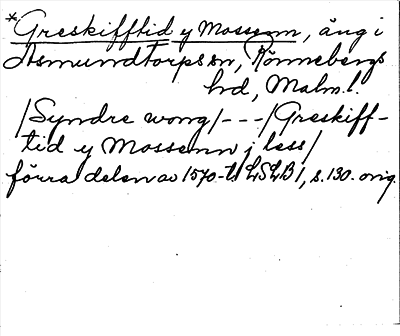 *Greskifftid y Mossenn, äng i
Asmundtorps sn, Rönnebergs
hd, Malm. l.
/Syndre wong/---/Greskiff-
tid y Mossenn j less/
förra delen av 1570-t. LSLB 1, s. 130. orig.